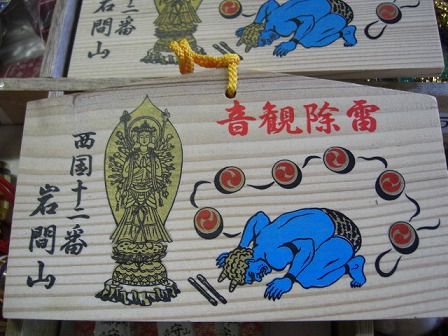 二番
岩間山
雷除観音
西国十二番
岩間山